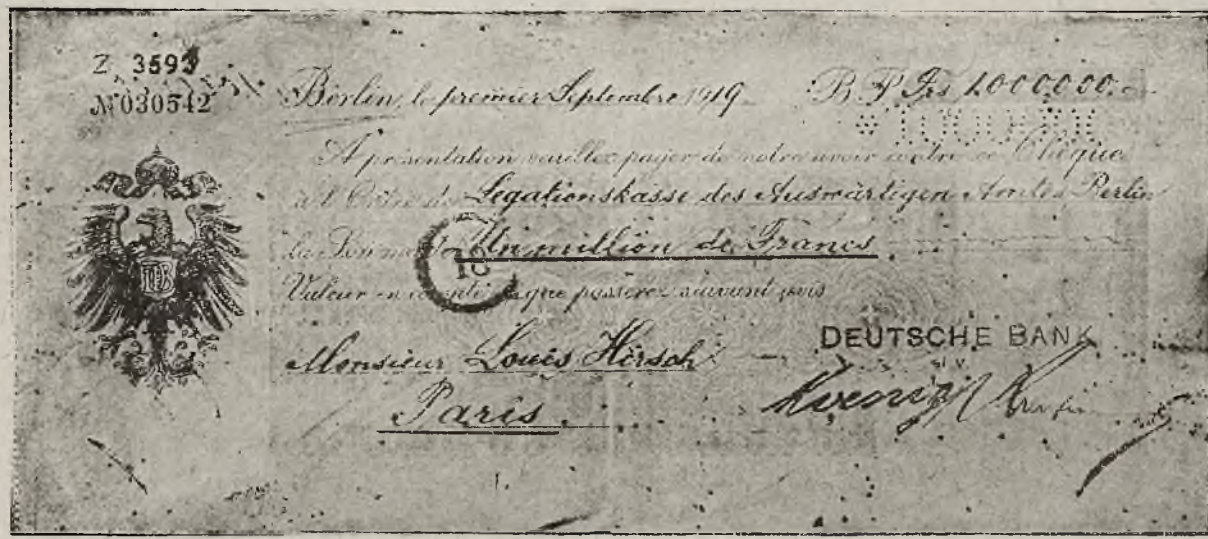 Z 3593
№ 030542
Berlin, le premier Septembre 1919
B. P. Frs 1.000.000.-
A présentation veuillez payer de notre avoir contre ce Chèque
à l'Ordre de Legationskasse des Auswärtigen Amtes Berlin
la Somme de Un million de Francs
18
Valeur en que passerez suivant avis
DEUTSCHE BANK
Monsieur Louis Hirsch
Paris.